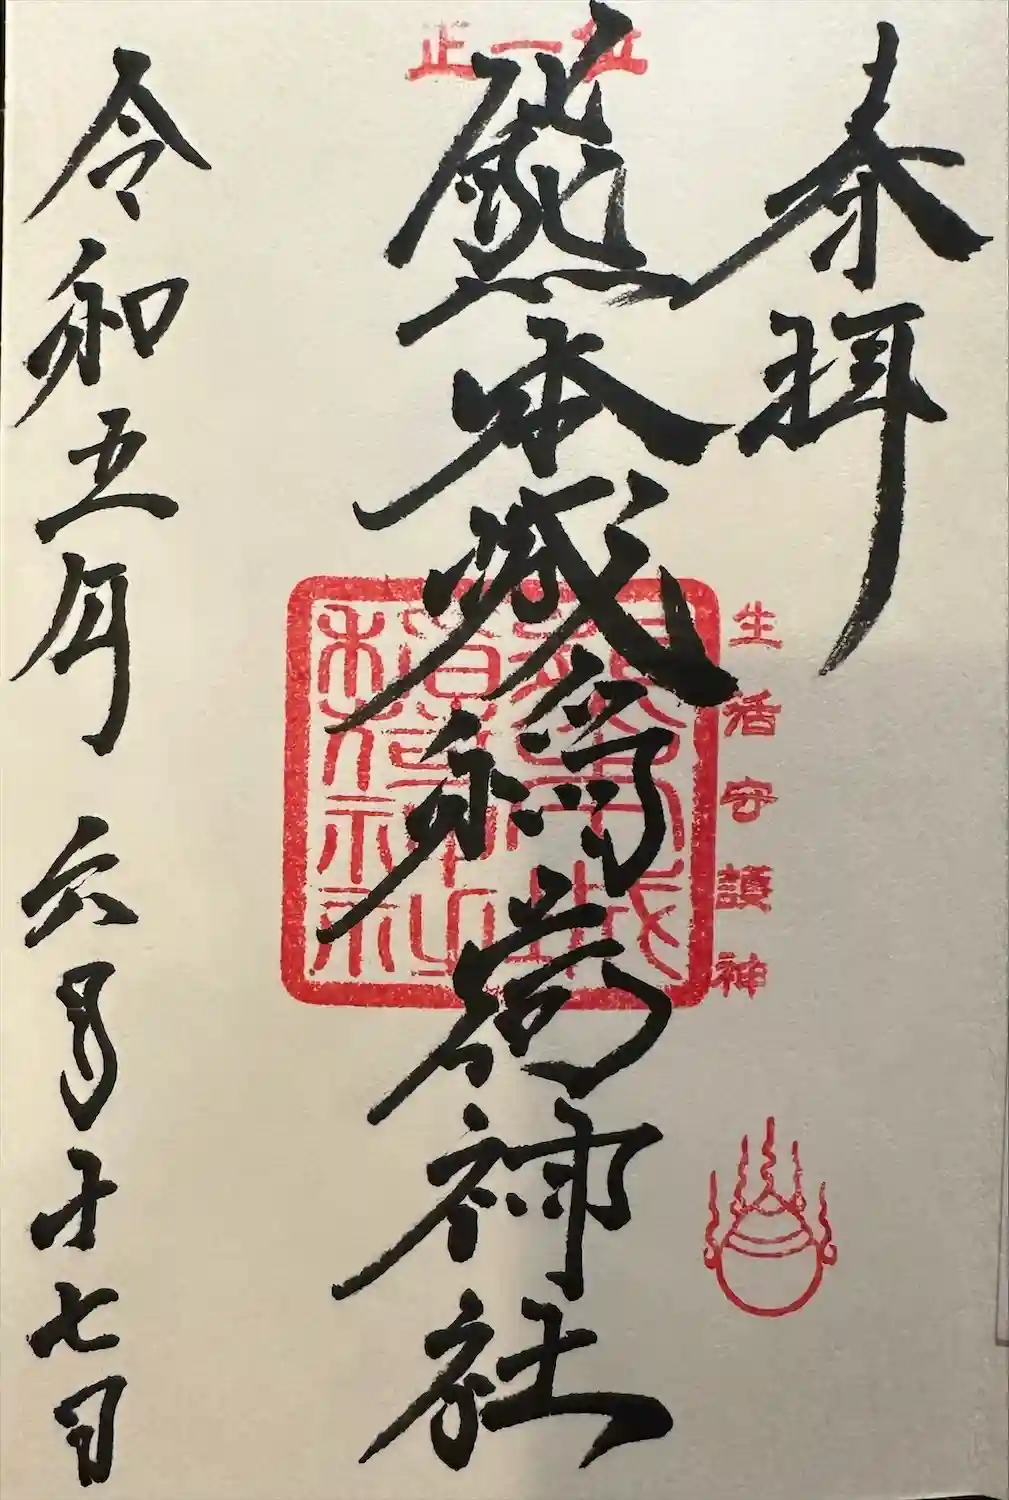 奉拝
正一位
熊本城稲荷神社
生活守護神
熊本城
稲荷神社
令和五年 六月十七日